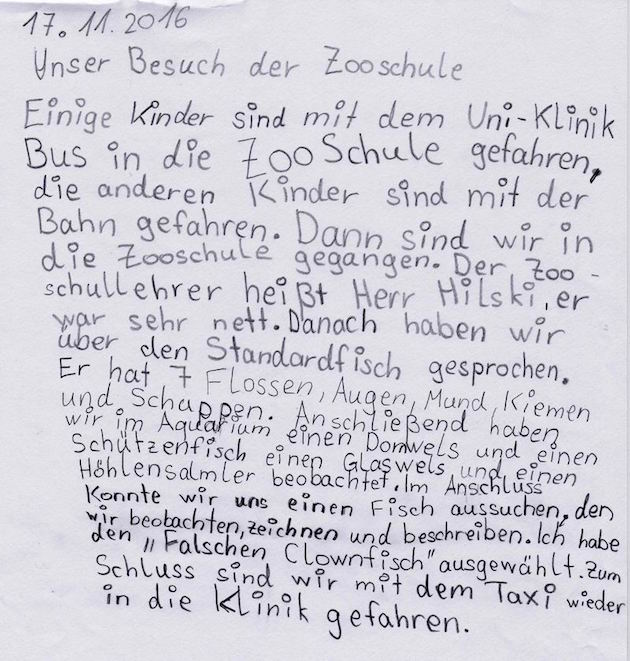 17.11.2016
Unser Besuch der Zooschule
Einige Kinder sind mit dem Uni-Klinik
Bus in die ZooSchule gefahren,
die anderen Kinder sind mit der
Bahn gefahren. Dann sind wir in
die Zooschule gegangen. Der Zoo-
schullehrer heißt Herr Hilski, er
war sehr nett. Danach haben wir
über den Standardfisch gesprochen.
Er hat 7 Flossen, Augen, Mund, Kiemen
und Schuppen. Anschließend haben
wir im Aquarium einen Donwels und einen
Schützenfisch einen Glaswels und einen
Höhlensalmler beobachtet. Im Anschluss
Konnte wir uns einen Fisch aussuchen, den
wir beobachten, zeichnen und beschreiben. Ich habe
den „Falschen Clownfisch" ausgewählt. Zum
Schluss sind wir mit dem Taxi wieder
in die Klinik gefahren.